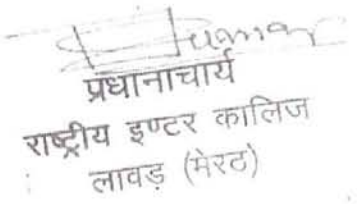 प्रधानाचार्य
राष्ट्रीय इण्टर कालिज
लावड़ (मेरठ)